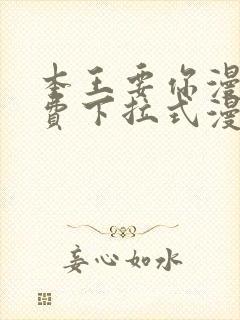 本王要你漫
费下拉式漫
妄心如水